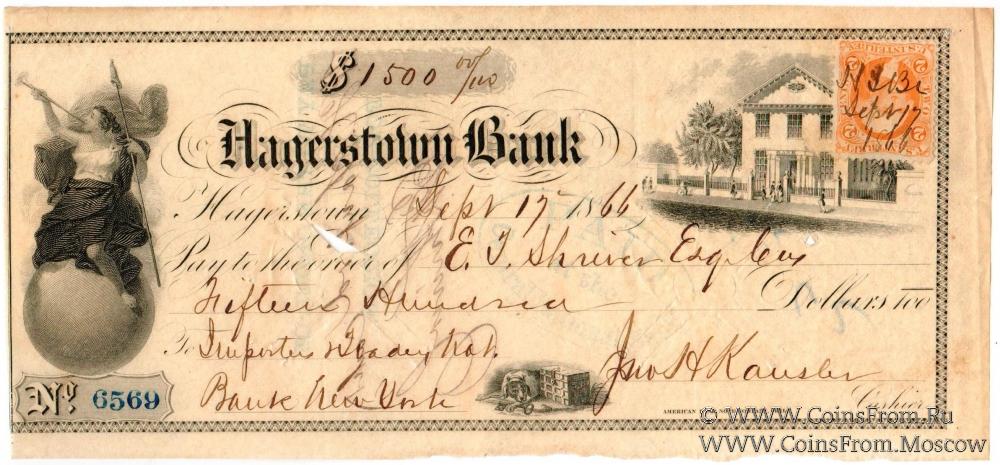 $1500 00/100
Hagerstown Bank
Hagerstown Sept 17 1866
Pay to the order of E. T. Shriver Esq Cas
Fifteen Hundred Dollars 100
To Importers & Traders Nat.
Bank New York
Jno H Kausler
Cashier
No. 6569
AMERICAN
2 U.S. INTER. REV. 2
Sept 17
66
© WWW.COINSFROM.RU
WWW.COINSFROM.MOSCOW